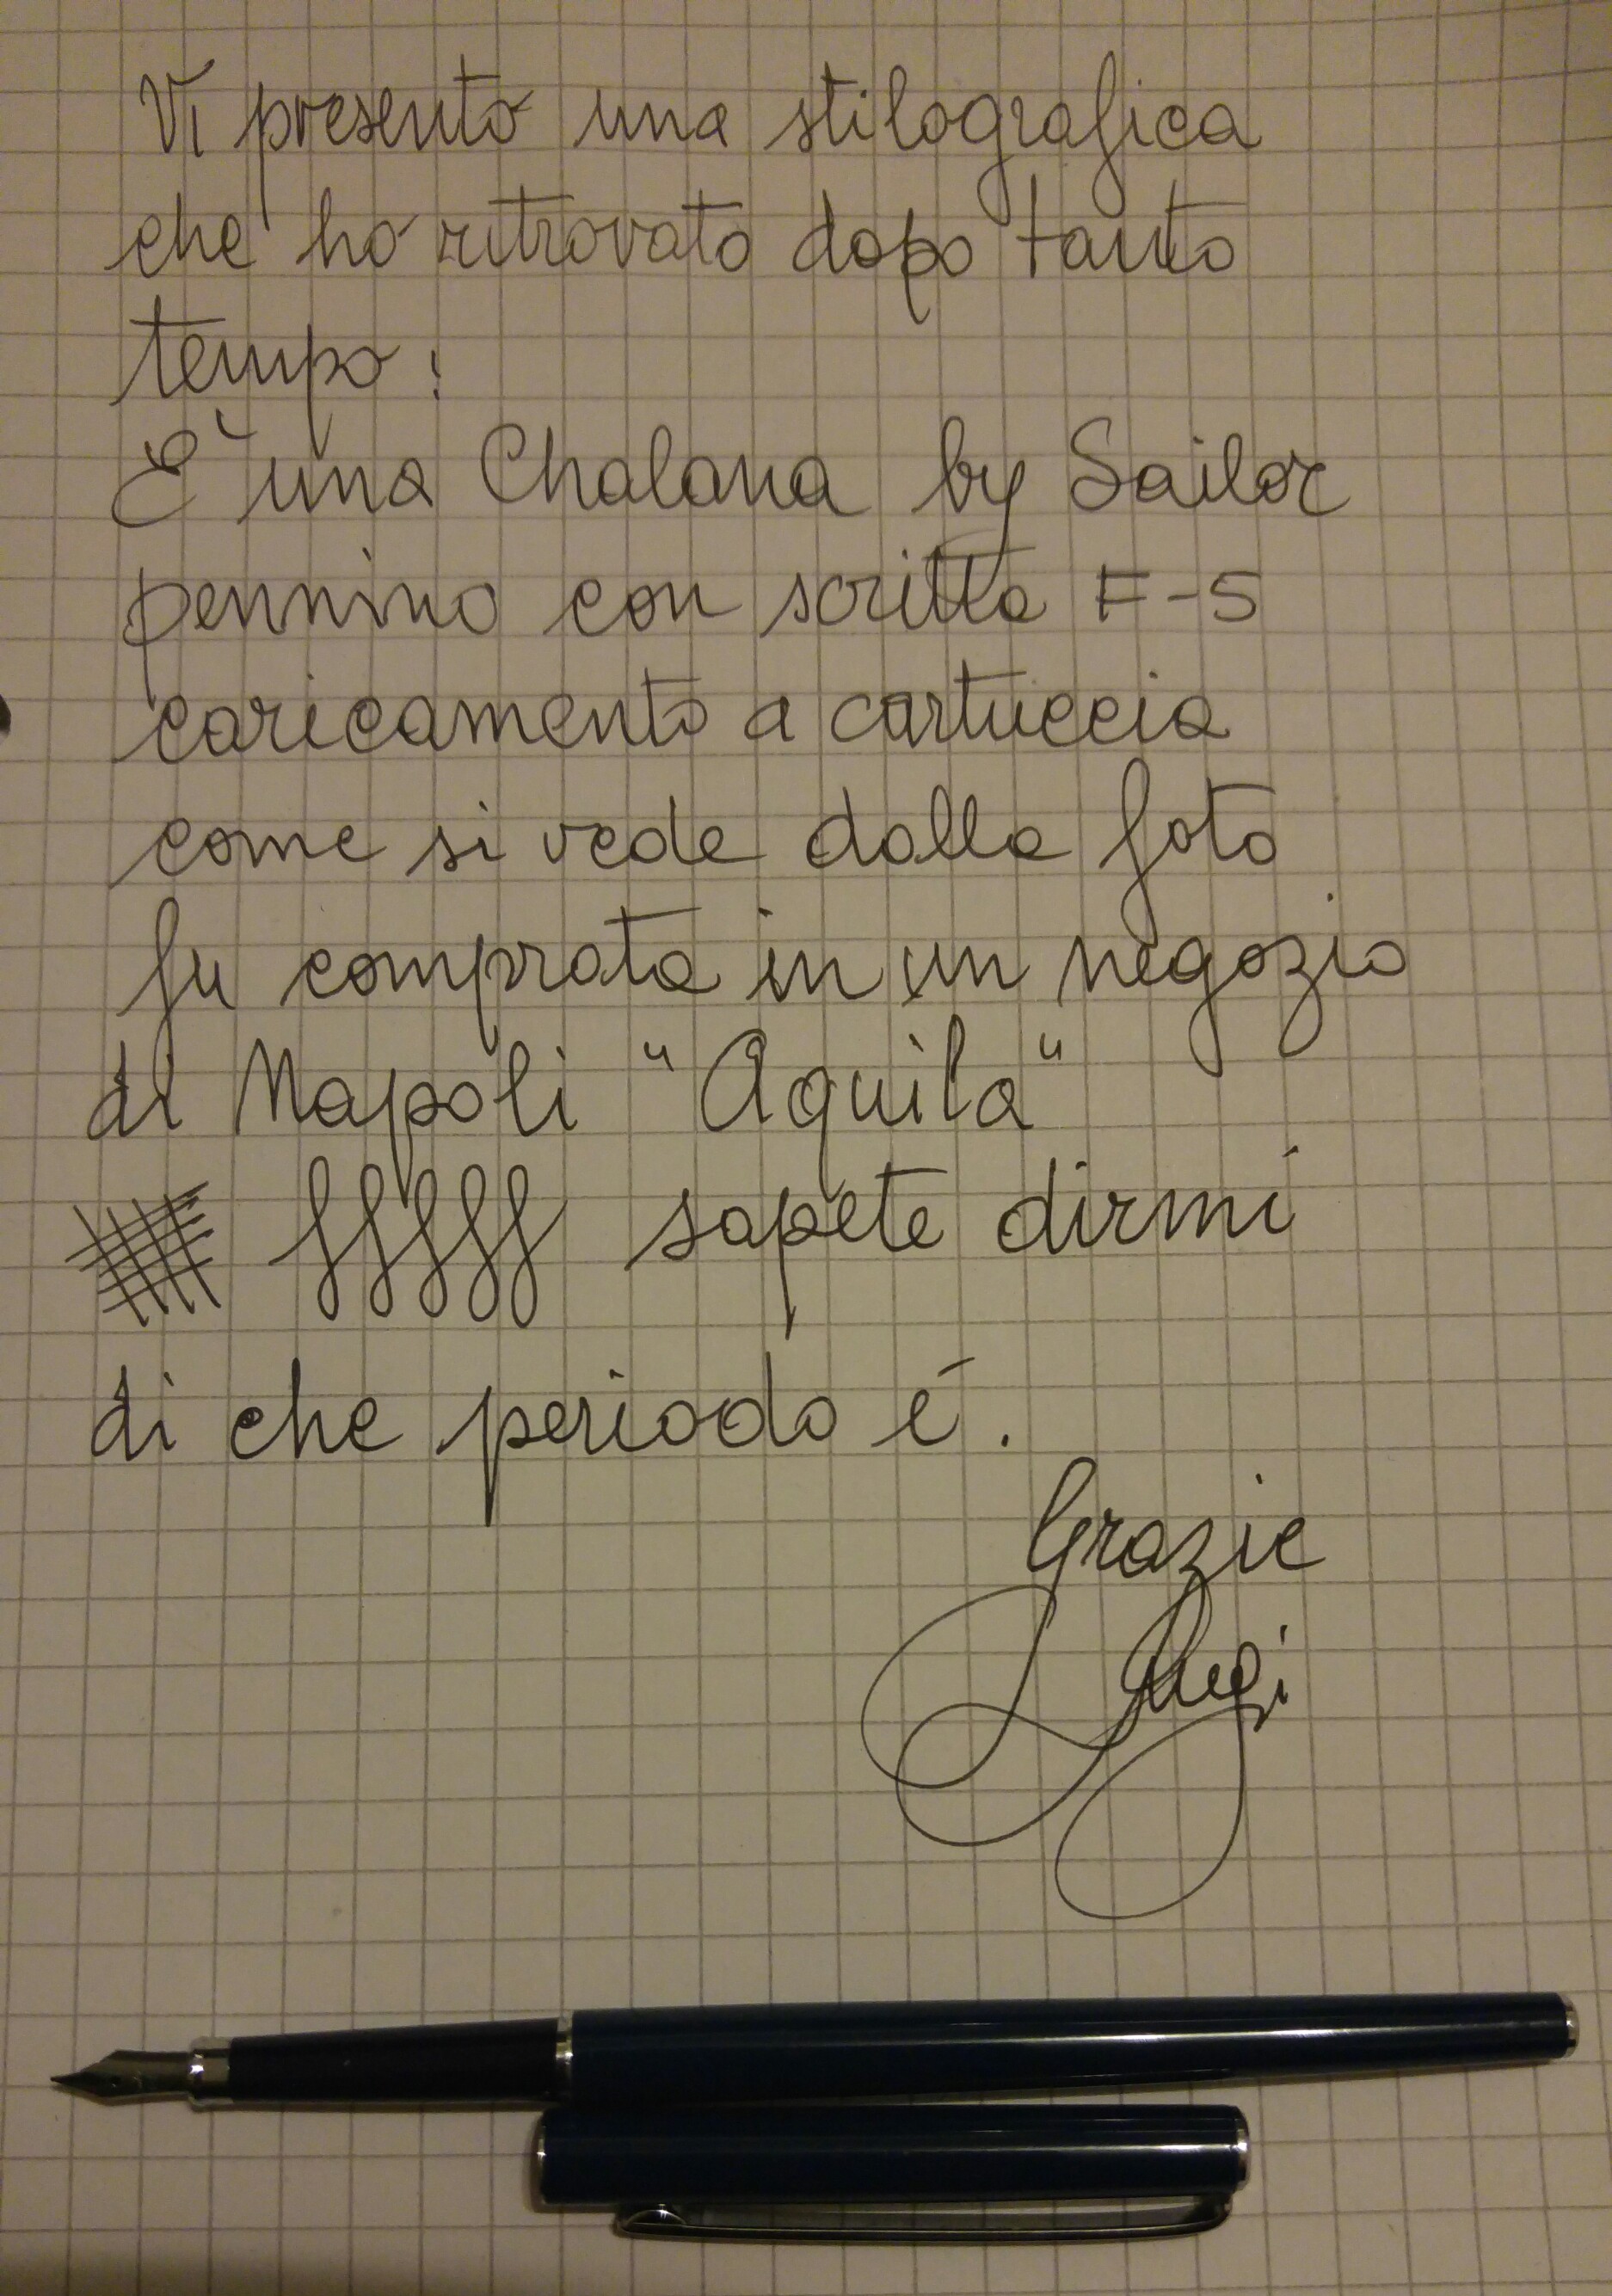 Vi presento una stilografica
che ho ritrovato dopo tanto
tempo:
È una Chalana by Sailor
pennino con scritta F-S
caricamento a cartuccia
come si vede dalla foto
fu comprata in un negozio
di Napoli "Aquila"
sapete dirmi
di che periodo é.
Grazie
Luigi